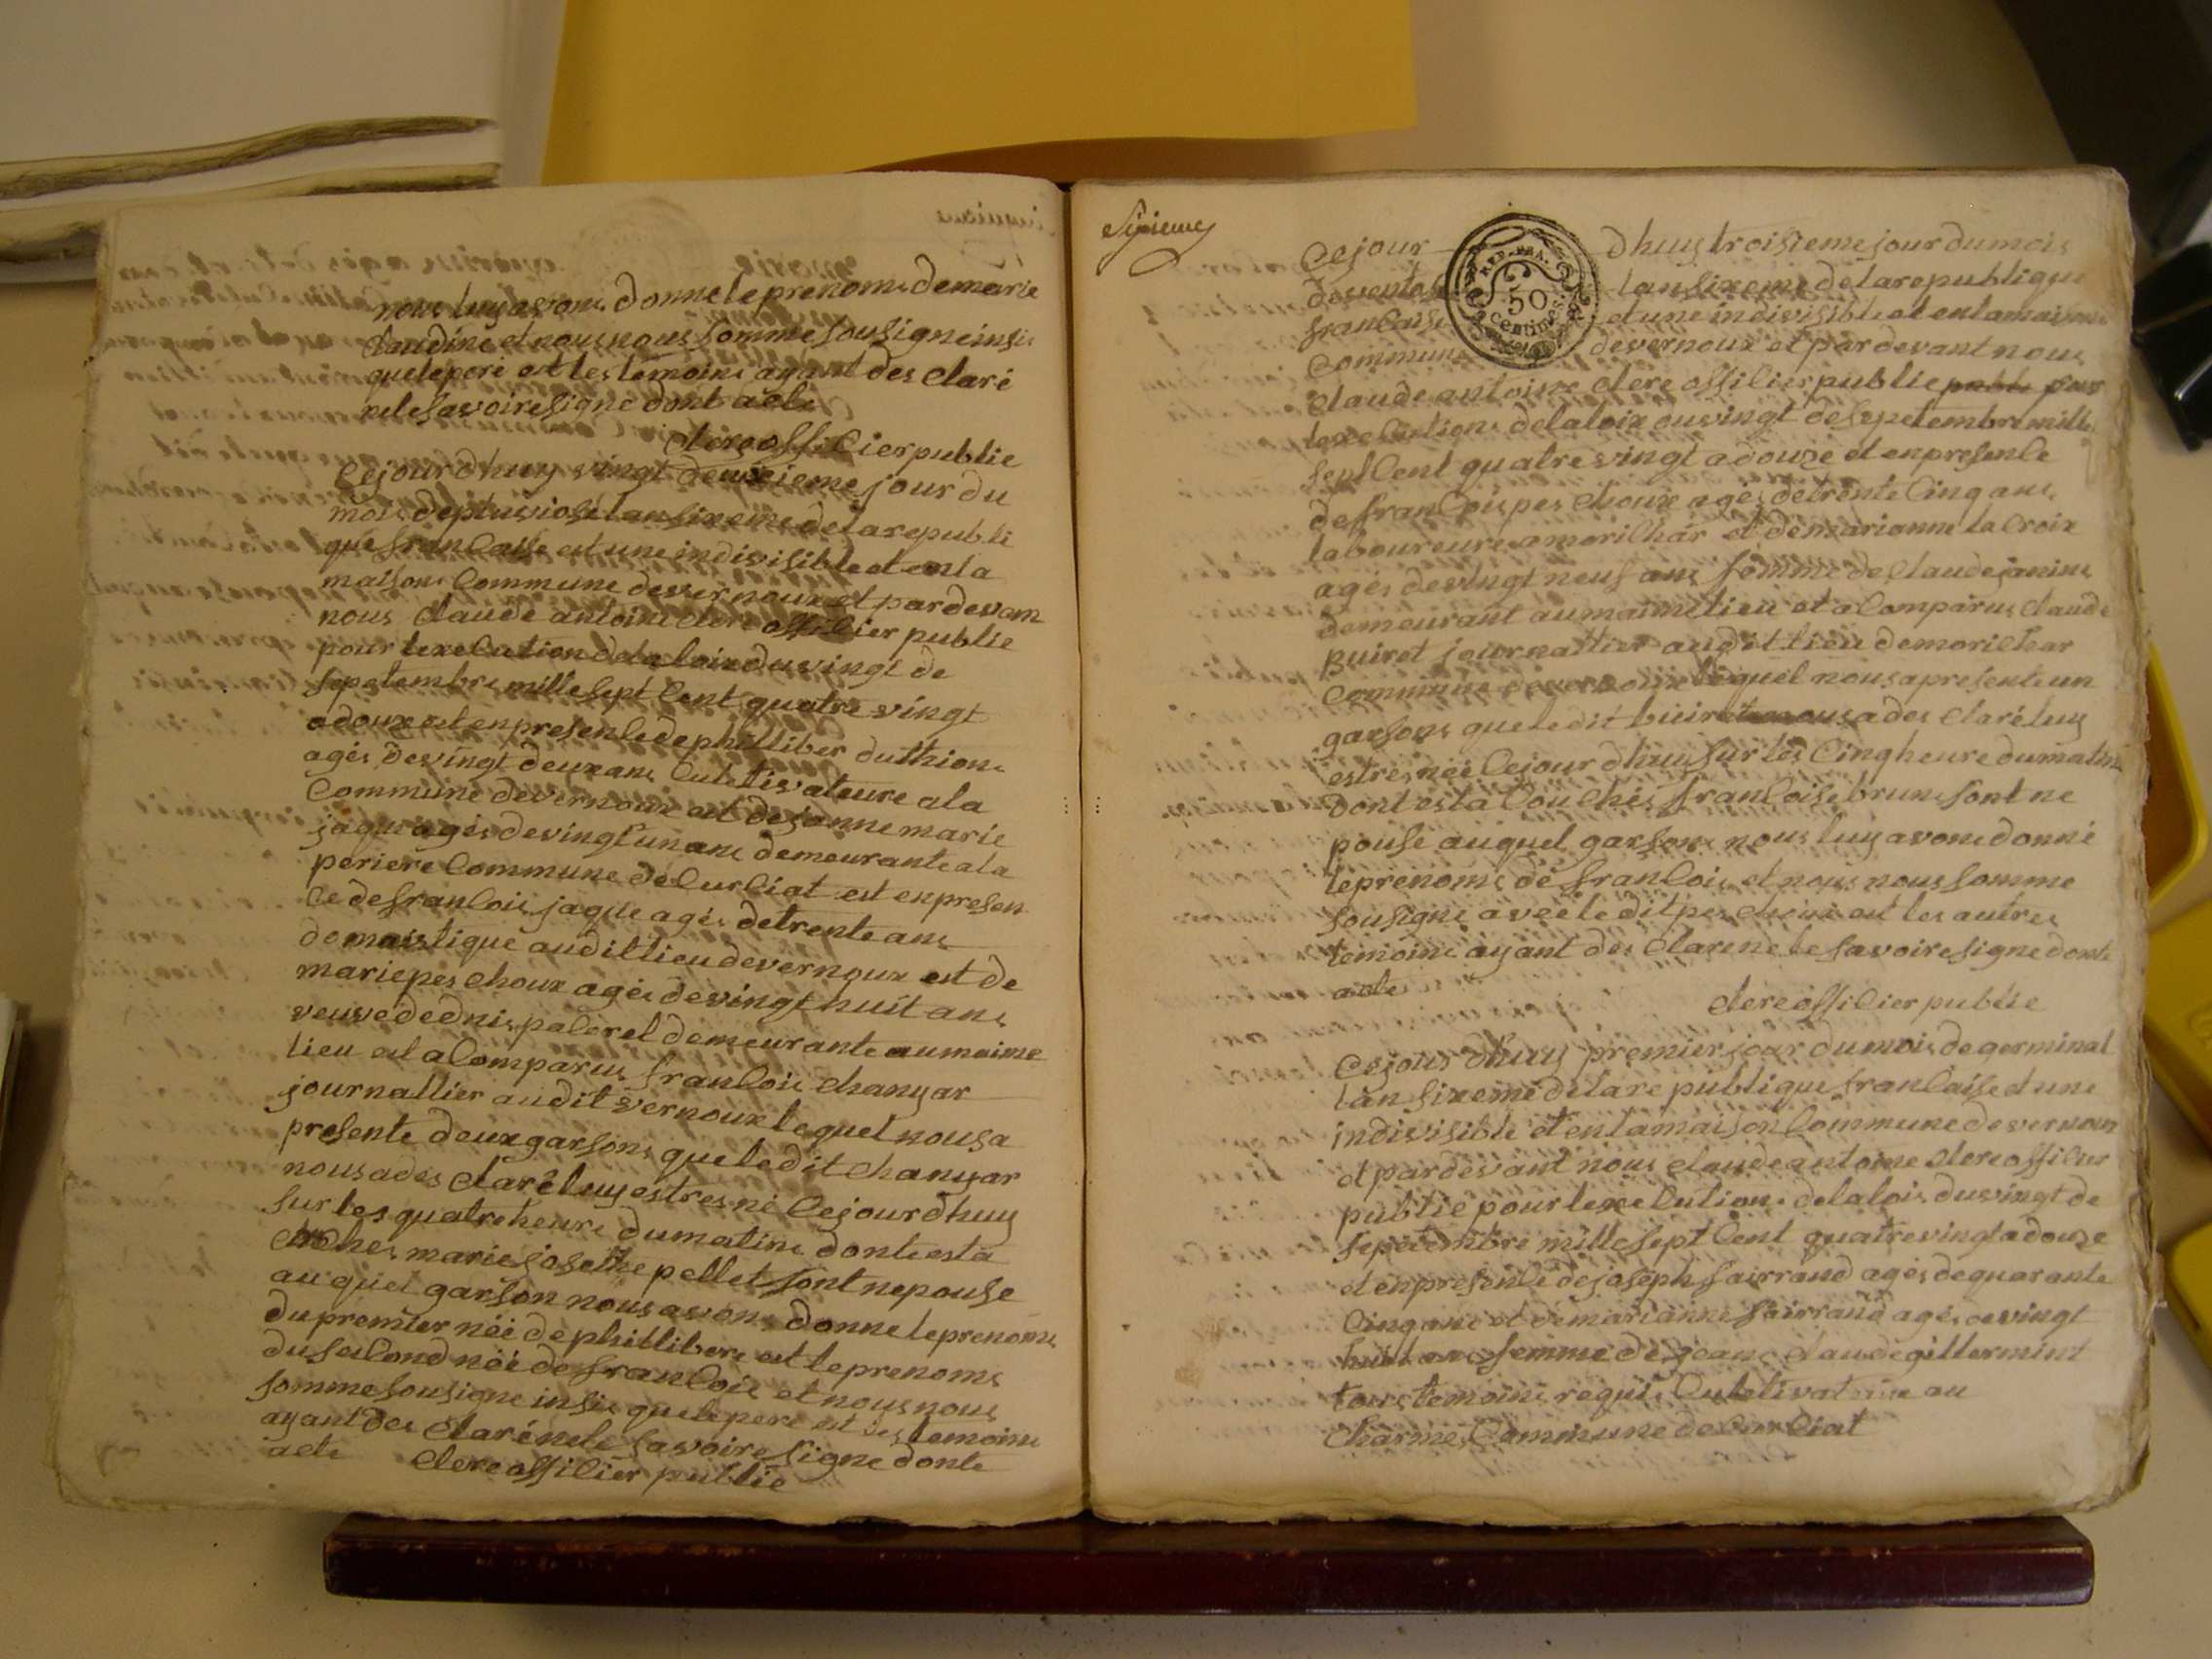 nous luy avons donne le prenoms de marie
claudine et nous nous somme sousigne insi
que le pere est les temoins ayant des claré
ne le savoire signe dont acte
clere offilier publie
Cejourdhuy vingt deuxieme jour du
mois de pluviose lan sixeme de la republi
que francaise est une indivisible et en la
maison commune de vernoux et par devan
nous claude antoine clere offilier publie
pour lexecution de la loix du vingt de
sepetembre mille sept cent quatre vingt
adouze est en presence de philliber duthion
agés de vingt deux ans culetivateure a la
commune de vernoux est de janne marie
jaque agés de vingt un ans demeurante a la
periere commune de curciat est en presen
ce de francois jaque agés de trente ans
domaistique audit lieu de vernoux est de
marie pes choux agés de vingt huit ans
veuve de denis paccrel demeurante au maime
lieu est a comparus francois chanyar
journallier audit vernoux lequel nous a
presente deux garsons que le dit chanyar
nous a des claré luy estres né cejourdhuy
sur les quatre heure du matin dont est a
couches marie josette pellet sont nepouse
au quel garson nous avons donne le prenoms
du premier néé de phillibere est le prenoms
du second néé de francois et nous nous
somme sousigne insi que le pere est les temoins
ayant des claré ne le savoire signe donte
acte clere offilier publie
Sixieme
REP. FRA.
50
centimes
Cejour dhuy troisieme jour du mois
de ventose lan sixeme de la republique
francaise et une indivisible et en la maison
commune de vernoux et par devant nous
claude antoine clere offilier publie pour
lexecution de la loix du vingt de sepetembre mille
sept cent quatre vingt adouze et en presence
de francois pes choux agés de trente cinq ans
laboureure a morilhar et de marianne la croix
agés de vingt neuf ans femme de claude janin
demeurant au maime lieu et a comparus claude
buiret journallier audit lieu de morilhar
commune de vernoux lequel nous a presente un
garsons que le dit buiret nous a des claré luy
estres néé cejourdhuy sur les cinq heure du matin
dont est a couchés francoise brun sont ne
pouse auquel garsons nous luy avons donné
le prenoms de francois et nous nous somme
sousigne avec le dit pes choux est les autres
temoins ayant des clare ne le savoire signe donte
acte
clere offilier publie
Cejour dhuy premier jour du mois de germinal
lan sixeme de la republique francaise et une
indivisible et en la maison commune de vernoux
et par devant nous claude antoine clere offilier
publie pour lexecution de la lois du vingt de
sepetembre mille sept cent quatre vingt adouze
et en presence de joseph fairraud agés de quarante
cinq ans et de marianne fairraud agés de vingt
huit ans femme de jeans claude gillermint
tous temoins requis culetivateure au
charme commune de curciat